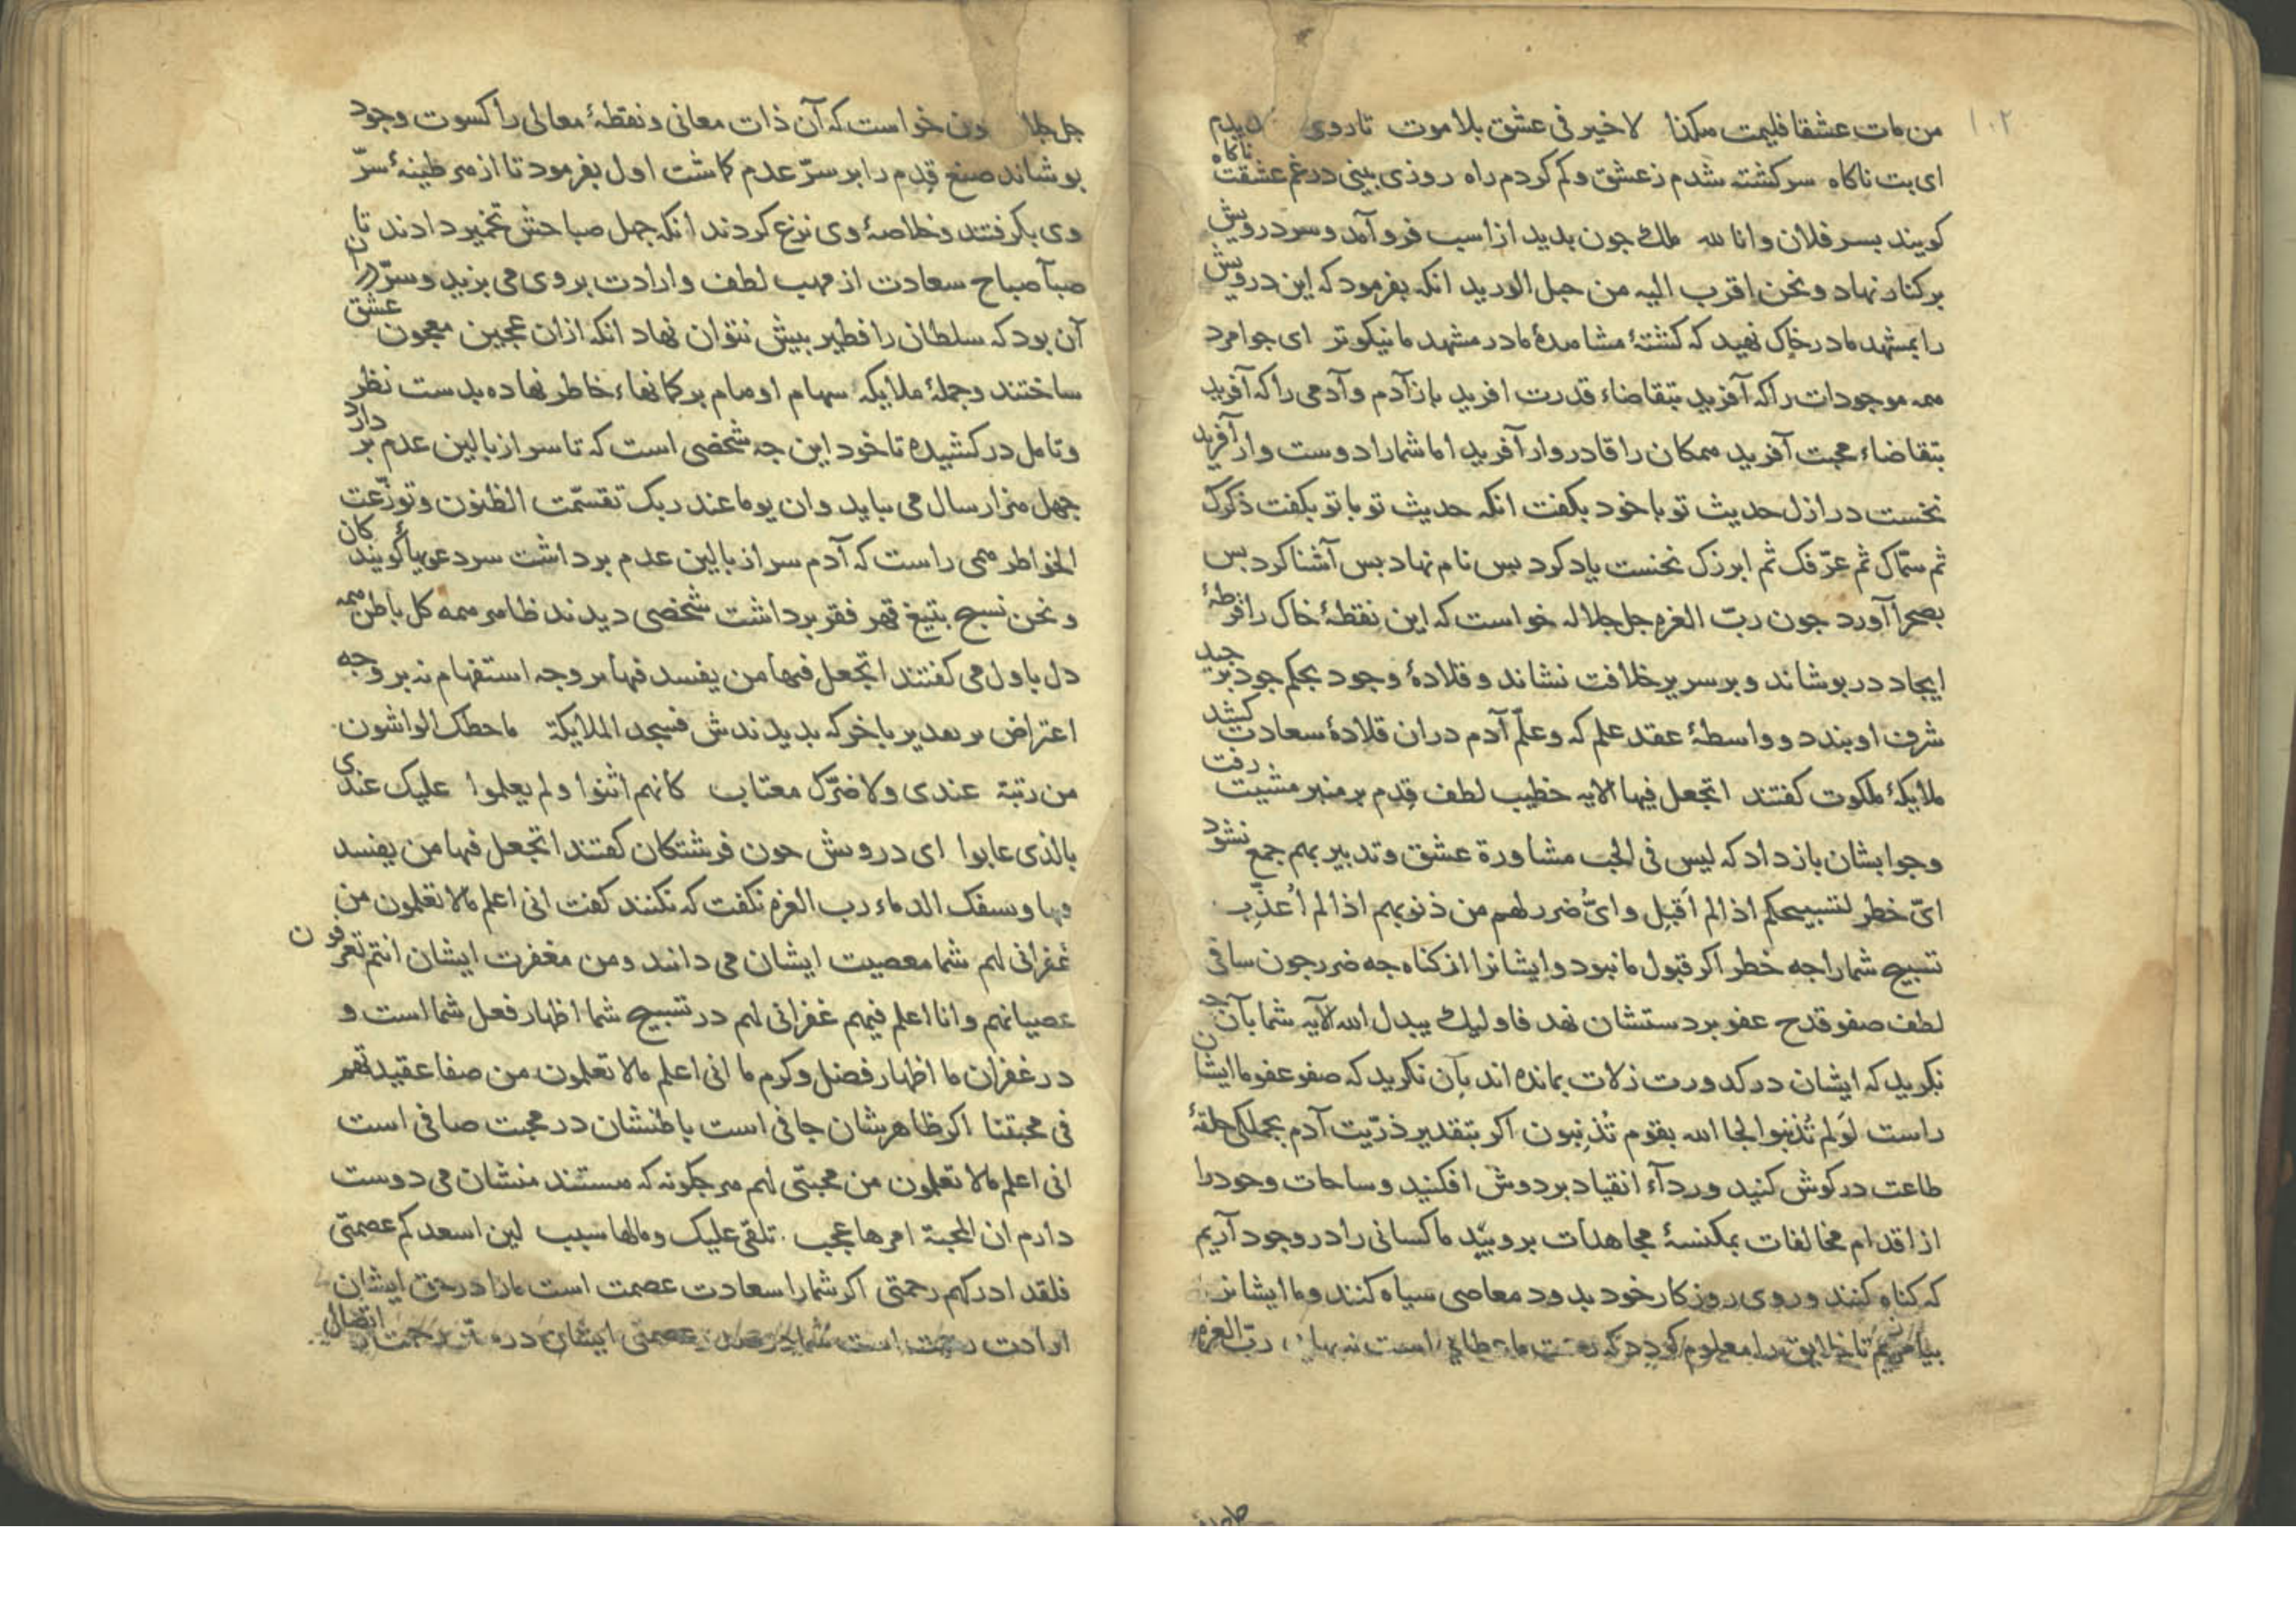 ۱۰۲
من مات عشقا فلیمت هکذا لا خیر فی عشق بلا موت تا روی دیدم
ای بت ناکاه سرکشته شدم زعشق و کم کردم راه روزی بینی در غم عشقت ناکاه
کویند بسر فلان وانا لله ملک جون بدید از اسب فرو آمد و سر درویش
برکنار نهاد و نحن اقرب الیه من حبل الورید انکه بفرمود که این درویش
را بمشهد ما در خاک نهید که کشتهٔ مشاهدهٔ ما در مشهد ما نیکوتر ای جوامرد
همه موجودات را که آفرید بتقاضاء قدرت افرید باز آدم و آدمی را که آفرید
بتقاضاء محبت آفرید همکان را قادروار آفرید اما شما را دوست وار آفرید
نخست در ازل حدیث تو با خود بکفت انکه حدیث تو با تو بکفت ذکرک
ثم سمّاک ثم عرّفک ثم ابرزک نخست یاد کرد بس نام نهاد بس آشنا کرد بس
بصحرا آورد جون ربّ العزه جل جلاله خواست که این نقطهٔ خاک را قرطهٔ
ایجاد در بوشاند و بر سریر خلافت نشاند و قلادهٔ وجود بحکم جود بر جید
شرف او بندد و واسطهٔ عقد علم که وعلّم آدم دران قلادهٔ سعادت کشد
ملایکهٔ ملکوت کفتند اتجعل فیها الایه خطیب لطف قِدم بر منبر مشیت رفت
و جوابشان باز داد که لیس فی الحب مشاورة عشق و تدبیر بهم جمع نشود
ایّ خطر لتسبیحکم اذا لم اَقبل و ایّ ضرر لهم من ذنوبهم اذا لم اُعذّب
تسبیح شما را جه خطر اکر قبول ما نبود و ایشانرا از کناه جه ضرر جون ساقی
لطف صفو قدح عفو بر دستشان نهد فاولیک یبدل الله الآیه شما بآن جه
نکرید که ایشان در کدورت زلات بمانده اند بآن نکرید که صفو عفو ما ایشان
راست لَولم تُذنبوا لجا الله بقوم تُذنِبون اکر بتقدیر ذرّیت آدم بجملکی حلقهٔ
طاعت در کوش کنید و ردآء انقیاد بر دوش افکنید و ساحات وجود را
از اقدام مخالفات بمکنسهٔ مجاهدات بروبید ما کسانی را در وجود آریم
که کناه کنند و روی روزکار خود بدود معاصی سیاه کنند و ما ایشانرا
بیامرزیم تا خلایق را معلوم کردد که رحمت ما عطایی است نه بهایی ربّ العزه
جل جلا ون خواست که آن ذات معانی و نقطهٔ معالی را کسوت وجود
بوشاند صنع قِدم را بر سرّ عدم کاشت اول بفرمود تا از هر طینهٔ سرّ
وی بکرفتند و خلاصهٔ وی نزع کردند انکه جهل صباحش تخمیر دادند تا
صبآ صباح سعادت از مهب لطف و ارادت بر وی می بزید و سرّ دران
آن بود که سلطان را فطیر بیش نتوان نهاد انکه ازان عجین معجون عشق
ساختند و جملهٔ ملایکه سهام اوهام بر کمانهاء خاطر نهاده بدست نظر
و تامل درکشیده تا خود این جه شخصی است که تا سر از بالین عدم بر دارد
جهل هزار سال می بباید وان یوما عند ربک تقسّمت الظنون و توزّعت
الخواطر همی راست که آدم سر از بالین عدم برداشت سر دعوی کویندکان
و نحن نسبح بتیغ قهر فقر برداشت شخصی دیدند ظاهر همه کل باطن همه
دل باول می کفتند اتجعل فیها من یفسد فیها بر وجه استفهام نه بر وجه
اعتراض بر تقدیر باخر که بدیدندش فسجد الملایکة ما حطک الواشون
من رتبة عندی ولا ضرّک مغتاب کانهم اثنوا ولم یعلموا علیک عندی
بالذی عابوا ای درویش جون فرشتکان کفتند اتجعل فیها من یفسد
فیها ویسفک الدماء رب العزه نکفت که نکنند کفت انی اعلم مالا تعلمون من
غفرانی لهم شما معصیت ایشان می دانند و من مغفرت ایشان انتم تعرفون
عصیانهم وانا اعلم فیهم غفرانی لهم در تسبیح شما اظهار فعل شما است و
در غفران ما اظهار فضل و کرم ما انی اعلم مالا تعلمون من صفا عقیدتهم
فی محبتنا اکر ظاهرشان جافی است باطنشان در محبت صافی است
انی اعلم مالا تعلمون من محبتی لهم هر جکونه که هستند منشان می دوست
دارم ان المحبة امرها عجب تلقی علیک و مالها سبب لین اسعدکم عصمتی
فلقد ادرکهم رحمتی اکر شما را سعادت عصمت است ما را در حق ایشان
ارادت رحمت است شما در عصمتی ایشان در رحمت اتصال